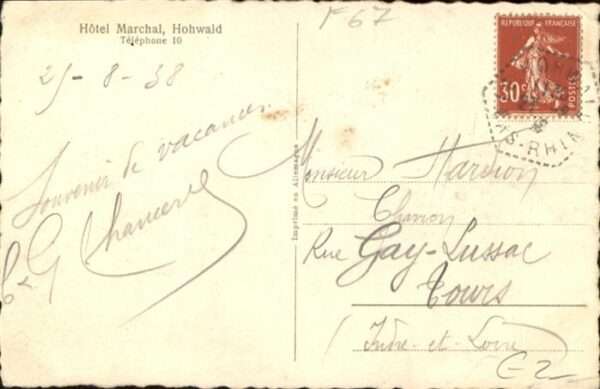 Hôtel Marchal, Hohwald
Téléphone 10
F 67
25-8-38
Souvenir de vacances
Imprimé en Allemagne
RÉPUBLIQUE FRANÇAISE
30c
POSTES
BAS-RHIN
Monsieur Hardion
Rue Gay-Lussac
Tours
Indre-et-Loire
C-2